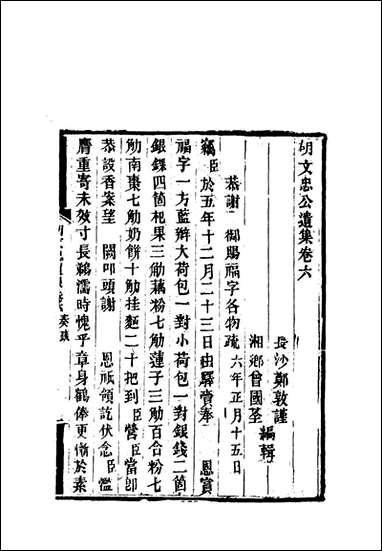 胡文忠公遺集卷六
長沙鄭敦謹
湘鄉曾國荃
編輯
恭謝 御賜福字各物疏六年正月十五日
竊臣於五年十二月二十三日由驛賫奉 恩賞
福字一方藍辦大荷包一對小荷包一對銀錢二箇
銀錁四箇杞果三觔藕粉七觔蓮子三觔百合粉七
觔南棗七觔奶餅十觔挂麵二十把到臣營臣當卽
恭設香案望 闕叩頭謝 恩祇領訖伏念臣濫
膺重寄未效寸長鵜濡時愧乎章身鶴俸更慚於素
奏疏